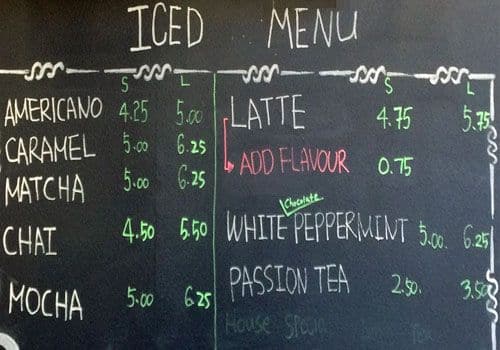 ICED MENU
S L
AMERICANO 4.25 5.00
CARAMEL 5.00 6.25
MATCHA 5.00 6.25
CHAI 4.50 5.50
MOCHA 5.00 6.25
S L
LATTE 4.75 5.75
ADD FLAVOUR 0.75
Chocolate
WHITE PEPPERMINT 5.00. 6.25
PASSION TEA 2.50. 3.50
House Special Tea